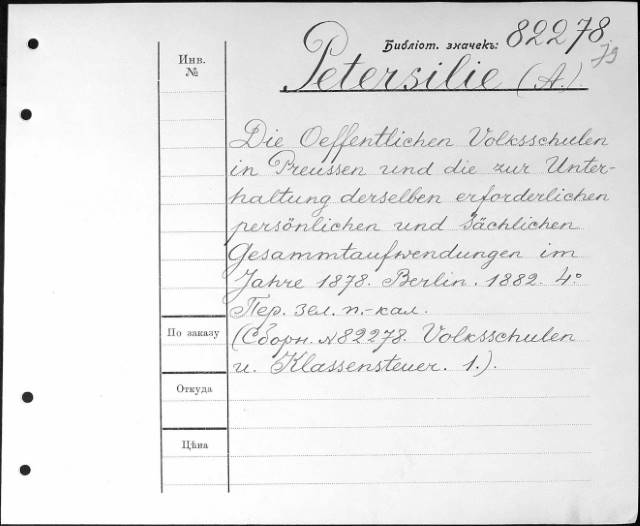 Библіот. значекъ: 82278
Инв. №
Petersilie (A.)
Die Oeffentlichen Volksschulen
in Preussen und die zur Unter-
haltung derselben erforderlichen
persönlichen und sächlichen
Gesammtaufwendungen im
Jahre 1878. Berlin. 1882. 4°
Пер. зел. п.-кал.
По заказу
(Сборн. №82278. Volksschulen
u. Klassensteuer. 1.).
Откуда
Цѣна